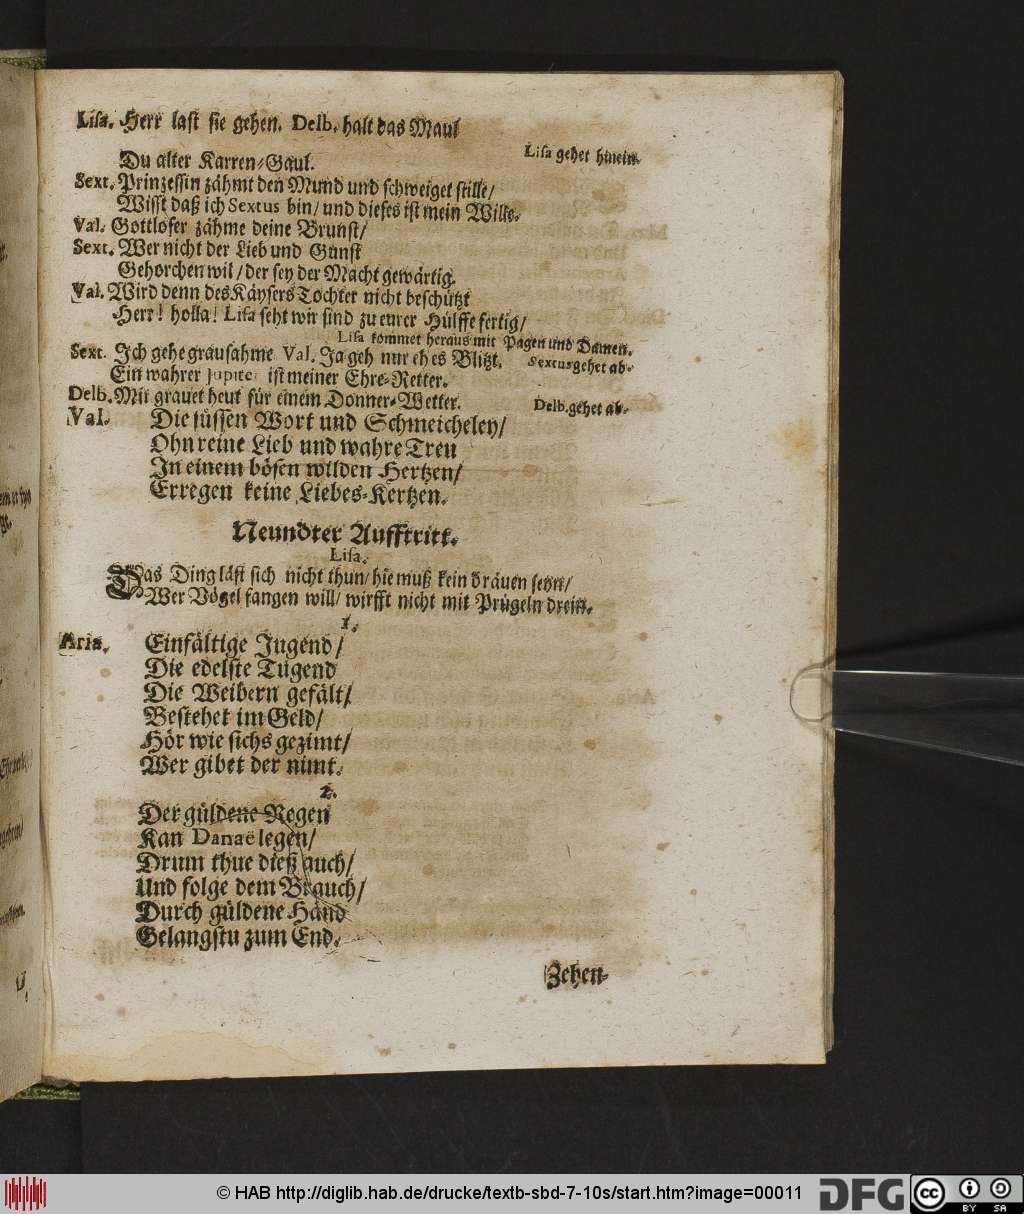 Lisa. Herr last sie gehen. Delb. halt das Maul
Du alter Karren-Gaul.
Lisa gehet hinein.
Sext. Prinzessin zähmt den Mund und schweiget stille/
Wisst daß ich Sextus bin/ und dieses ist mein Wille.
Val. Gottloser zähme deine Brunst/
Sext. Wer nicht der Lieb und Gunst
Gehorchen wil/ der sey der Macht gewärtig.
Val. Wird denn des Käysers Tochter nicht beschützt
Herr! holla! Lisa seht wir sind zu eurer Hülffe fertig/
Lisa kommet heraus mit Pagen und Damen.
Sext. Ich gehe grausahme Val. Ja geh nur eh es Blitzt.
Sextus gehet ab.
Ein wahrer Jupiter ist meiner Ehre-Retter.
Delb. Mir grauet heut für einem Donner-Wetter.
Delb. gehet ab.
Val. Die süssen Wort und Schmeicheley/
Ohn reine Lieb und wahre Treu
In einem bösen wilden Hertzen/
Erregen keine Liebes-Kertzen.
Neundter Aufftritt.
Lisa.
Das Ding läst sich nicht thun/ hie muß kein dräuen seyn/
Wer Vögel fangen will/ wirfft nicht mit Prügeln drein.
1.
Aria. Einfältige Jugend/
Die edelste Tugend
Die Weibern gefält/
Bestehet im Geld/
Hör wie sichs gezimt/
Wer gibet der nimt.
2.
Der güldene Regen
Kan Danaë legen/
Drum thue dieß auch/
Und folge dem Brauch/
Durch güldene Händ
Gelangstu zum End.
Zehen-
© HAB http://diglib.hab.de/drucke/textb-sbd-7-10s/start.htm?image=00011
DFG
cc BY SA